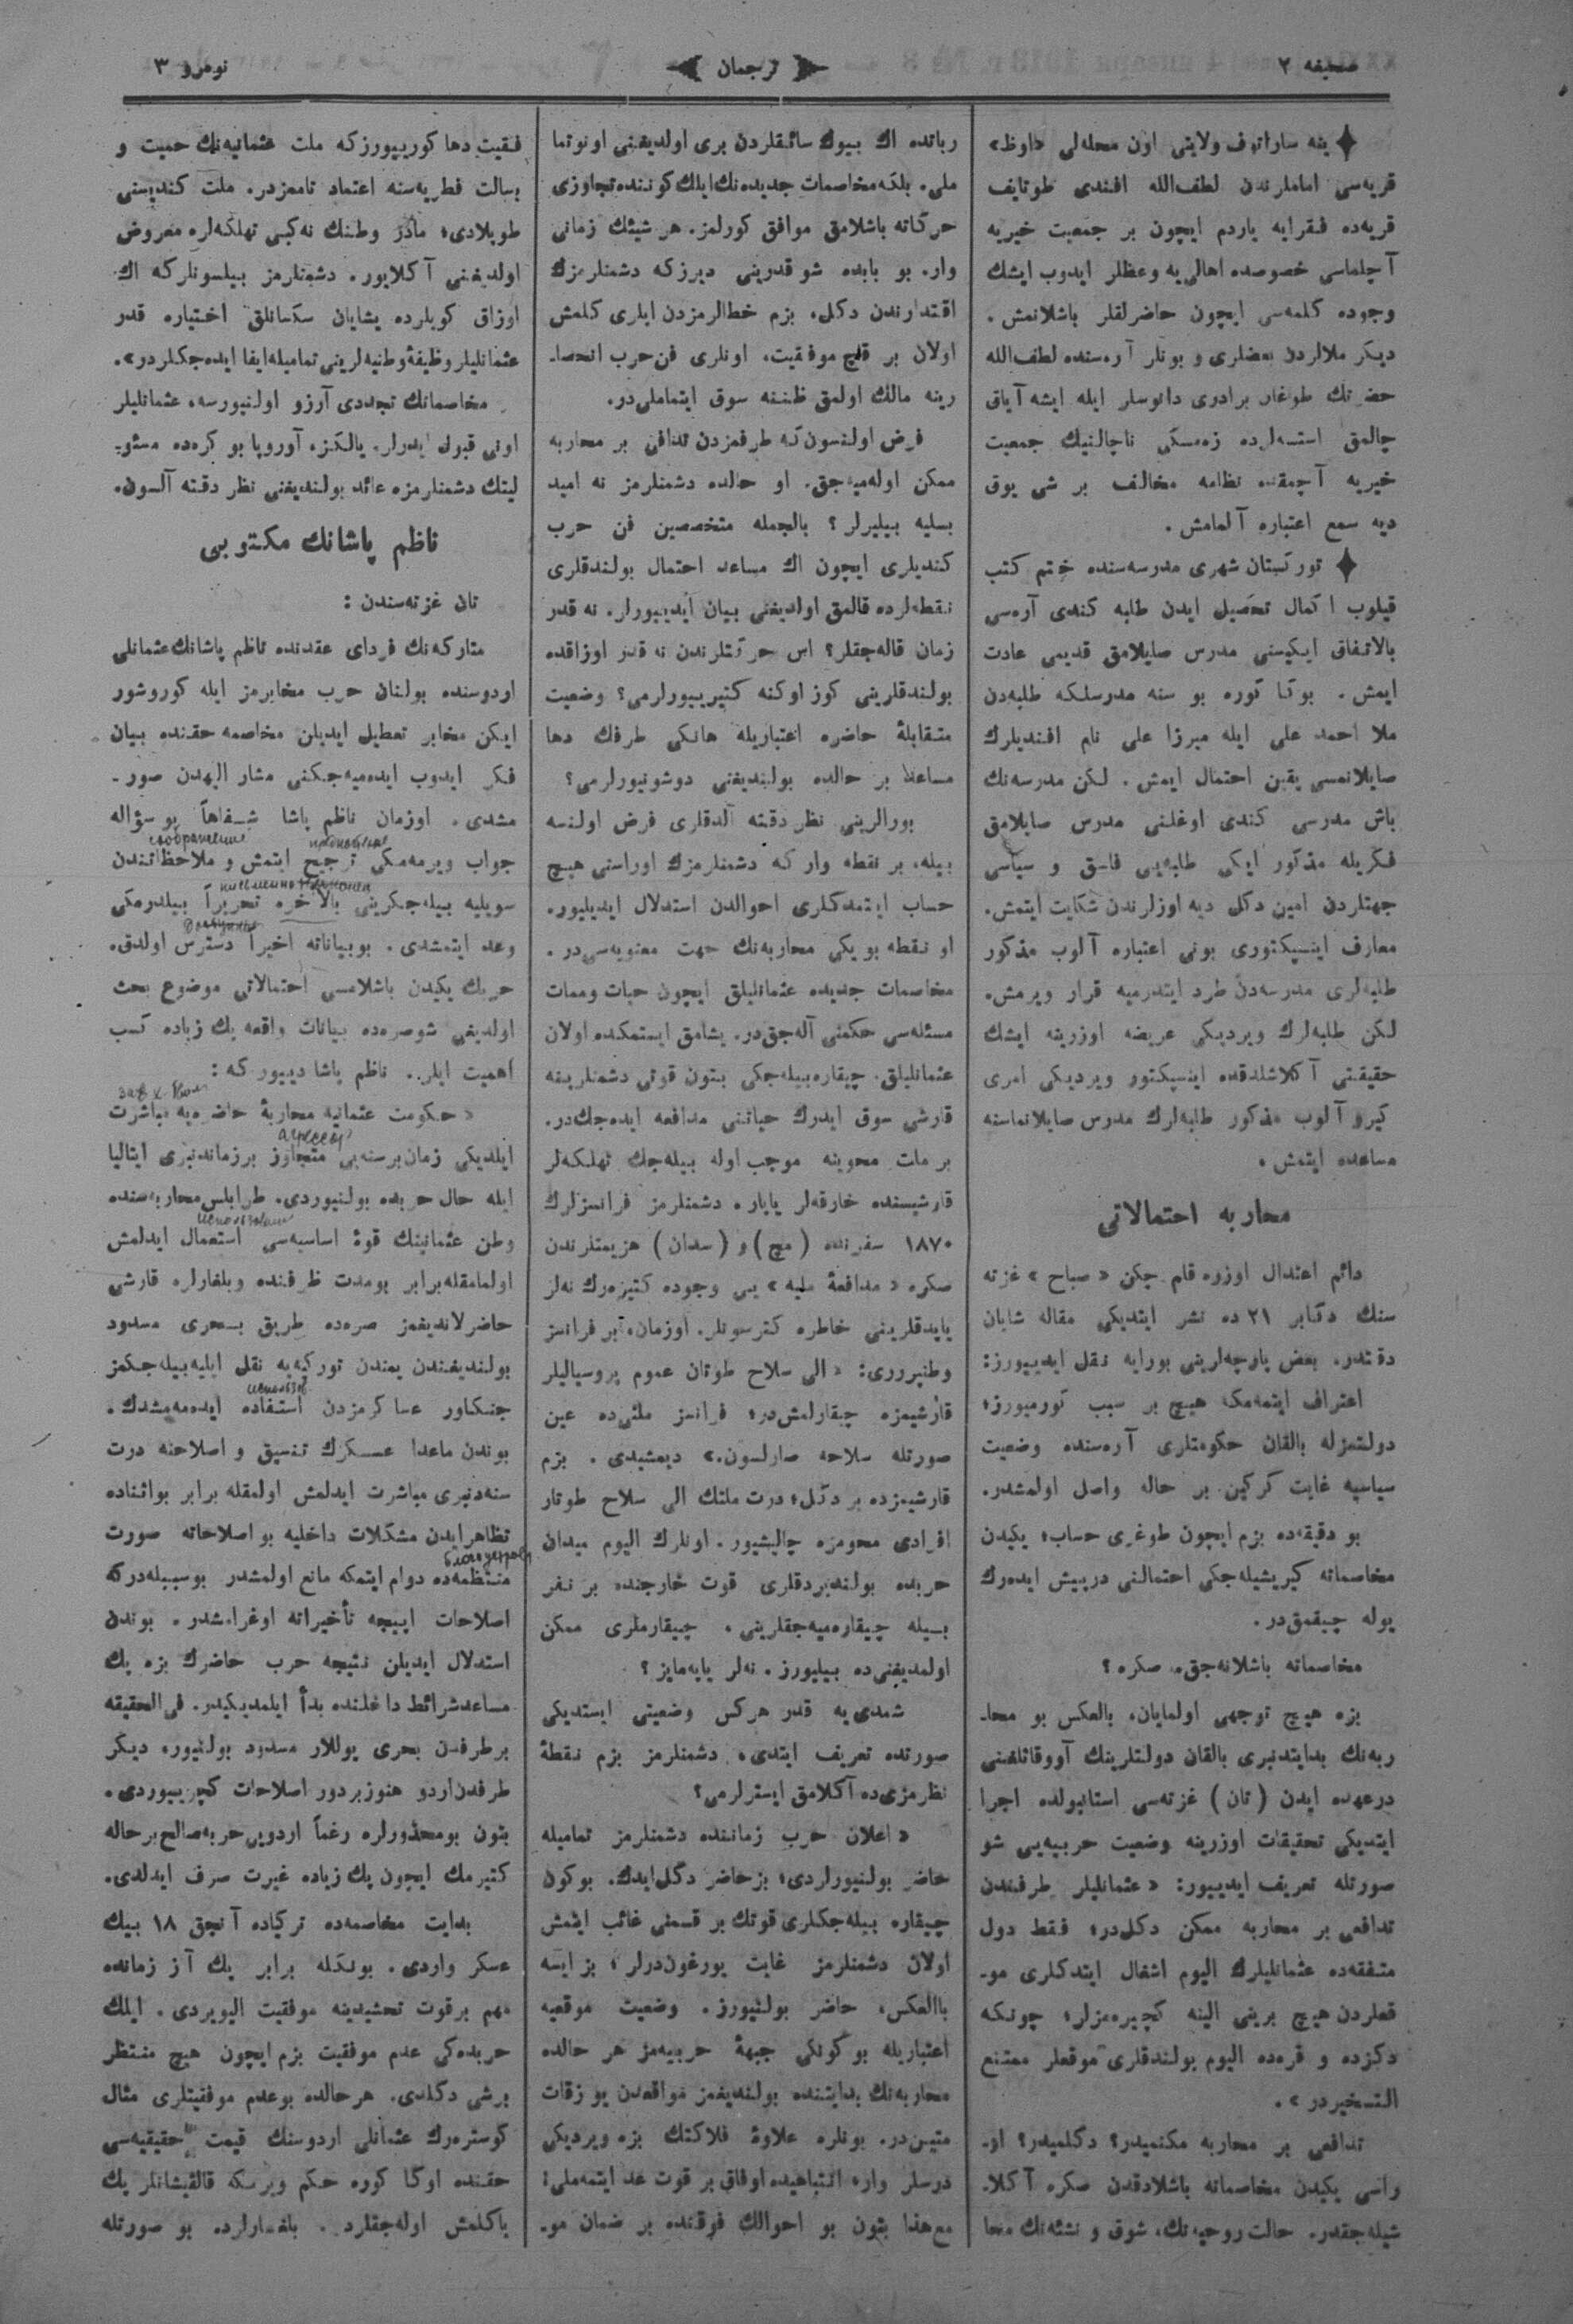 صحيفه ٢
ترجمان
نومرو ٣
ينه ساراتوف ولايتى اون محله‌لى «اوظ»
قريه‌سى اماملرندن لطف‌الله افندى طوتايف
قريه‌ده فقرايه ياردم ايچون بر جمعيت خيريه
آچلماسى خصوصده اهالى‌يه وعظلر ايدوب ايشك
وجوده كلمه‌سى ايچون حاضرلقلر باشلانمش.
ديكر ملالردن بعضلرى و بونلر آره‌سنده لطف‌الله
حضرتك طوغان برادرى دانوسلر ايله ايشه آياق
چالمق استه‌لرده زه‌مسكى ناچالنيك جمعيت
خيريه آچمقده نظامه مخالف بر شى يوق
ديه سمع اعتباره آلمامش.
توركستان شهرى مدرسه‌سنده ختم كتب
قيلوب اكمال تحصيل ايدن طلبه كندى آره‌سى
بالاتفاق ايكيسنى مدرس صايلامق قديمى عادت
ايمش. بوكا كوره بو سنه مدرسلكه طلبه‌دن
ملا احمد على ايله ميرزا على نام افنديلرك
صايلانمسى يقين احتمال ايمش. لكن مدرسه‌نك
باش مدرسى كندى اوغلنى مدرس صايلامق
فكريله مذكور ايكى طلبه‌يى فاسق و سياسى
جهتلردن امين دكل ديه اوزلرندن شكايت ايتمش.
معارف اينسپكتورى بونى اعتباره آلوب مذكور
طلبه‌لرى مدرسه‌دن طرد ايتدرميه قرار ويرمش.
لكن طلبه‌لرك ويرديكى عريضه اوزرينه ايشك
حقيقتى آكلاشلدقده اينسپكتور ويرديكى امرى
كيرو آلوب مذكور طلبه‌لرك مدرس صايلانماسنه
مساعده ايتمش.
محاربه احتمالاتى
دائم اعتدال اوزره قلم چكن «صباح» غزته
سنك دكابر ٢١ ده نشر ايتديكى مقاله شايان
دقتدر. بعض پارچه‌لرينى بورايه نقل ايدييورز:
اعتراف ايتمه‌مكه هيچ بر سبب كورميورز؛
دولتمزله بالقان حكومتلرى آره‌سنده وضعيت
سياسيه غايت كركين بر حاله واصل اولمشدر.
بو دقيقه‌ده بزم ايچون طوغرى حساب؛ يكيدن
مخاصماته كيريشيله‌جكى احتمالنى درپيش ايده‌رك
يوله چيقمق‌در.
مخاصماته باشلانه‌جق، صكره؟
بزه هيچ توجهى اولمايان، بالعكس بو محا-
ربه‌نك بدايتدنبرى بالقان دولتلرينك آووقاتلغنى
درعهده ايدن (تان) غزته‌سى استانبولده اجرا
ايتديكى تحقيقات اوزرينه وضعيت حربيه‌يى شو
صورتله تعريف ايدييور: «عثمانليلر طرفندن
تدافعى بر محاربه ممكن دكل‌در؛ فقط دول
متفقه‌ده عثمانليلرك اليوم اشغال ايتدكلرى مو-
قعلردن هيچ برينى الينه كچيره‌مزلر؛ چونكه
دكزده و قره‌ده اليوم بولندقلرى موقعلر ممتنع
التسخيردر».
تدافعى بر محاربه مكنميدر؟ دكلميدر؟ او-
راسى يكيدن مخاصماته باشلادقدن صكره آكلا-
شيله‌جقدر. حالت روحيه‌نك، شوق و نشئه‌نك محا
رباتده اك بيوك سائقلردن برى اولديغنى اونوتما
ملى. بلكه مخاصمات جديده‌نك ايلك كوننده تجاوزى
حركاته باشلامق موافق كورلمز. هر شيئك زمانى
وار. بو بابده شو قدرينى ديرزكه دشمنلرمزك
اقتدارندن دكل، بزم خطالرمزدن ايلرى كلمش
اولان بر قاچ موفقيت، اونلرى فن حرب انحصا-
رينه مالك اولمق ظننه سوق ايتماملى‌در.
فرض اولنسون كه طرفمزدن تدافى بر محاربه
ممكن اوله‌ميه‌جق. او حالده دشمنلرمز نه اميد
بسليه بيليرلر؟ بالجمله متخصصين فن حرب
كنديلرى ايچون اك مساعد احتمال بولندقلرى
نقطه‌لرده قالمق اولديغنى بيان ايدييورلر. نه قدر
زمان قاله‌جقلر؟ اس حركتلرندن نه قدر اوزاقده
بولندقلرينى كوز اوكنه كتيرييورلرمى؟ وضعيت
متقابلهٔ حاضره اعتباريله هانكى طرفك دها
مساعد بر حالده بولنديغنى دوشونيورلرمى؟
بورالرينى نظر دقته آلدقلرى فرض اولنسه
بيله، بر نقطه وار كه دشمنلرمزك اوراسنى هيچ
حساب ايتمدكلرى احوالدن استدلال ايديليور.
او نقطه بو يكى محاربه‌نك جهت معنويه‌سى‌در.
مخاصمات جديده عثمانليلق ايچون حيات و ممات
مسئله‌سى حكمنى آله‌جق‌در. يشامق ايستمكده اولان
عثمانليلق، چيقاره‌بيله‌جكى بتون قوتى دشمنلرينه
قارشى سوق ايدرك حياتنى مدافعه ايده‌جك‌در.
بر ملت محوينه موجب اوله بيله‌جك تهلكه‌لر
قارشيسنده خارقه‌لر ياپار. دشمنلرمز فرانسزلرك
١٨٧٠ سفرنده (مچ) و (سدان) هزيمتلرندن
صكره «مدافعهٔ مليه» يى وجوده كتيره‌رك نه‌لر
ياپدقلرينى خاطره كترسونلر. اوزمان، بر فرانسز
وطنپرورى: «الى سلاح طوتان عموم پروسياليلر
قارشيمزه چيقارلمش‌در؛ فرانسز ملتى‌ده عين
صورتله سلاحه صارلسون.» ديمشيدى. بزم
قارشيمزده بر دكل؛ درت ملتك الى سلاح طوتار
افرادى محومزه چاليشيور. اونلرك اليوم ميدان
حربده بولنديردقلرى قوت خارجنده بر نفر
بيله چيقاره‌ميه‌جقلرينى، چيقارملرى ممكن
اولمديغنى‌ده بيليورز. نه‌لر ياپه‌مايز؟
شمدى‌يه قدر هركس وضعيتى ايستديكى
صورتده تعريف ايتدى. دشمنلرمز بزم نقطهٔ
نظرمزى‌ده آكلامق ايسترلرمى؟
«اعلان حرب زماننده دشمنلرمز تماميله
حاضر بولنيورلردى؛ بز حاضر دكل‌ايدك. بوكون
چيقاره بيله‌جكلرى قوتك بر قسمنى غائب ايتمش
اولان دشمنلرمز غايت يورغون‌درلر؛ بز ايسه
باالعكس، حاضر بولنيورز. وضعيت موقعيه
اعتباريله بوكونكى جبههٔ حربيه‌مز هر حالده
محاربه‌نك بدايتنده بولنديغمز مواقعدن يو زقات
متين‌در. بونلره علاوهٔ فلاكتك بزه ويرديكى
درسلر وار، انتباهيده اوفاق بر قوت عد ايتمه‌ملى؛
مع‌هذا بتون بو احوالك فوقنده بر ضمان مو-
فقيت دها كورييورزكه ملت عثمانيه‌نك حميت و
بسالت فطريه‌سنه اعتماد تاممزدر. ملت كنديسنى
طوپلادى؛ مادر وطنك نه‌كبى تهلكه‌لره معروض
اولديغنى آكلايور. دشمنلرمز بيلسونلركه اك
اوزاق كويلرده يشايان سكسانلق اختياره قدر
عثمانليلر وظيفهٔ وطنيه‌لرينى تماميله ايفا ايده‌جكلردر».
مخاصماتك تجددى آرزو اولنيورسه، عثمانليلر
اونى قبول ايدرلر. يالكز، آوروپا بو كره‌ده مسئو-
ليتك دشمنلرمزه عائد بولنديغنى نظر دقته آلسون.
ناظم پاشانك مكتوبى
تان غزته‌سندن:
متاركه‌نك فرداى عقدنده ناظم پاشانك عثمانلى
اردوسنده بولنان حرب مخابرمز ايله كوروشور
ايكن مخابر تعطيل ايديلن مخاصمه حقنده بيان
فكر ايدوب ايده‌ميه‌جكنى مشار اليهدن صور-
مشدى. اوزمان ناظم پاشا شفاهاً بو سؤاله
جواب ويرمه‌مكى ترجيح ايتمش و ملاحظاتندن
سويليه بيله‌جكرينى بالآخره تحريراً بيلدرمكى
وعد ايتمشدى. بو بياناته اخيراً دسترس اولدق.
حربك يكيدن باشلامسى احتمالاتى موضوع بحث
اولديغى شوصره‌ده بيانات واقعه پك زياده كسب
اهميت ايلر. ناظم پاشا دييور كه:
«حكومت عثمانيه محاربهٔ حاضره‌يه مباشرت
ايلديكى زمان برسنه‌يى متجاوز برزماندنبرى ايتاليا
ايله حال حربده بولنيوردى. طرابلس محاربه‌سنده
وطن عثمانينك قوهٔ اساسيه‌سى استعمال ايدلمش
اولمامقله برابر بومدت ظرفنده وبلغارلره قارشى
حاضرلانديغمز صره‌ده طريق بحرى مسدود
بولنديغندن يمندن توركيه‌يه نقل ايليه‌بيله‌جكمز
جنكاور عساكرمزدن استفاده ايده‌مه‌مشدك.
بوندن ماعدا عسكرك تنسيق و اصلاحنه درت
سنه‌دنبرى مباشرت ايدلمش اولمقله برابر بواثناده
تظاهر ايدن مشكلات داخليه بو اصلاحاته صورت
منتظمه‌ده دوام ايتمكه مانع اولمشدر بوسببله‌دركه
اصلاحات اپيجه تأخيراته اوغرامشدر. بوندن
استدلال ايديلن نتيجه حرب حاضرك بزه پك
مساعد شرائط داخلنده بدأ ايلمديكيدر. فى الحقيقه
برطرفدن بحرى يوللار مسدود بولنيور، ديكر
طرفدن اردو هنوز بردور اصلاحات كچرييوردى.
بتون بومحذورلره رغماً اردويى حربه صالح برحاله
كتيرمك ايچون پك زياده غيرت صرف ايدلدى.
بدايت مخاصمه‌ده تركياده آنجق ١٨ بيك
عسكر واردى. بونكله برابر پك آز زمانده
مهم برقوت تحشيدينه موفقيت اليويردى. ايلك
حربده‌كى عدم موفقيت بزم ايچون هيچ منتظر
برشى دكلدى. هرحالده بوعدم موفقيتلرى مثال
كوستره‌رك عثمانلى اردوسنك قيمت حقيقيه‌سى
حقنده اوكا كوره حكم ويرمكه قالقيشانلر پك
ياكلمش اوله‌جقلردر. بلغارلرده بو صورتله